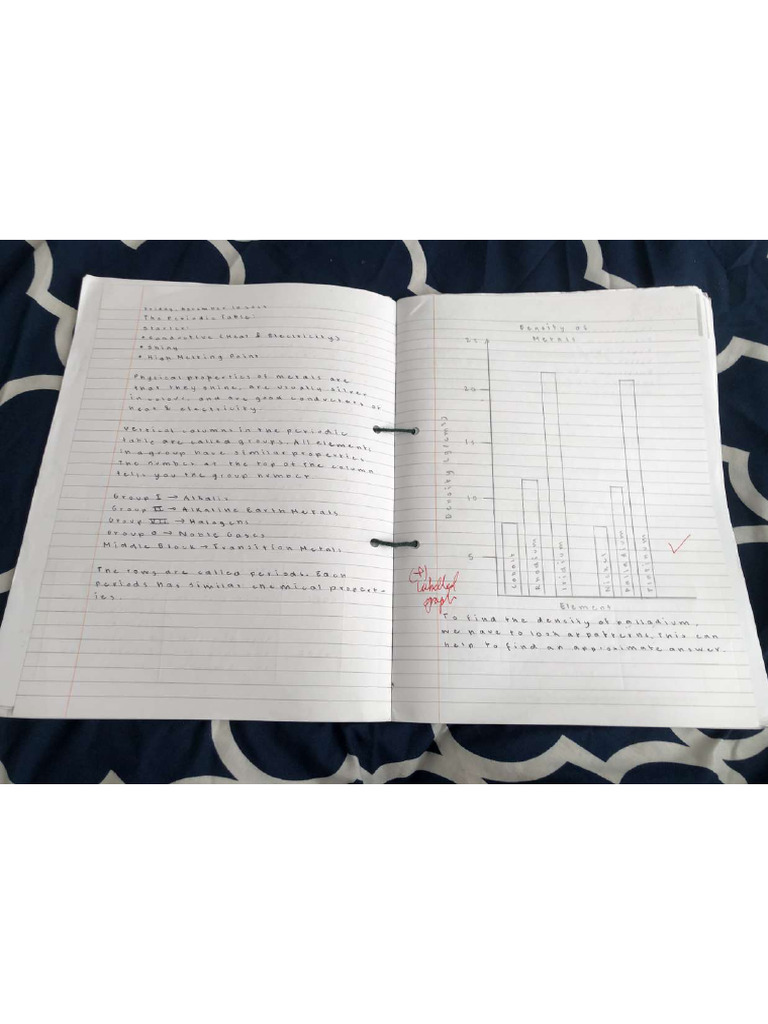 The Periodic Table:
Starter:
• Conductive (Heat & Electricity)
• Shiny
• High Melting Point
Physical properties of metals are
that they shine, are usually silver
in colour, and are good conductors of
heat & electricity.
Vertical columns in the periodic
table are called groups. All elements
in a group have similar properties.
The number at the top of the column
tells you the group number
Group I → Alkalis
Group II → Alkaline Earth Metals
Group VII → Halogens
Group 0 → Noble Gases
Middle Block → Transition Metals
The rows are called periods. Each
periods has similar chemical propert-
ies.
Density of
Metals
25
20
15
10
5
Density (g/cm3)
Cobalt
Rhodium
Iridium
Nickel
Palladium
Platinum
Element
(+)
labelled
graph
To find the density of palladium,
we have to look at patterns. This can
help to find an approximate answer.